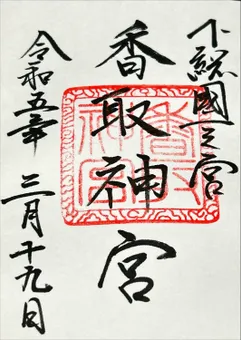 下総國一之宮
香取神宮
令和五年 三月十九日